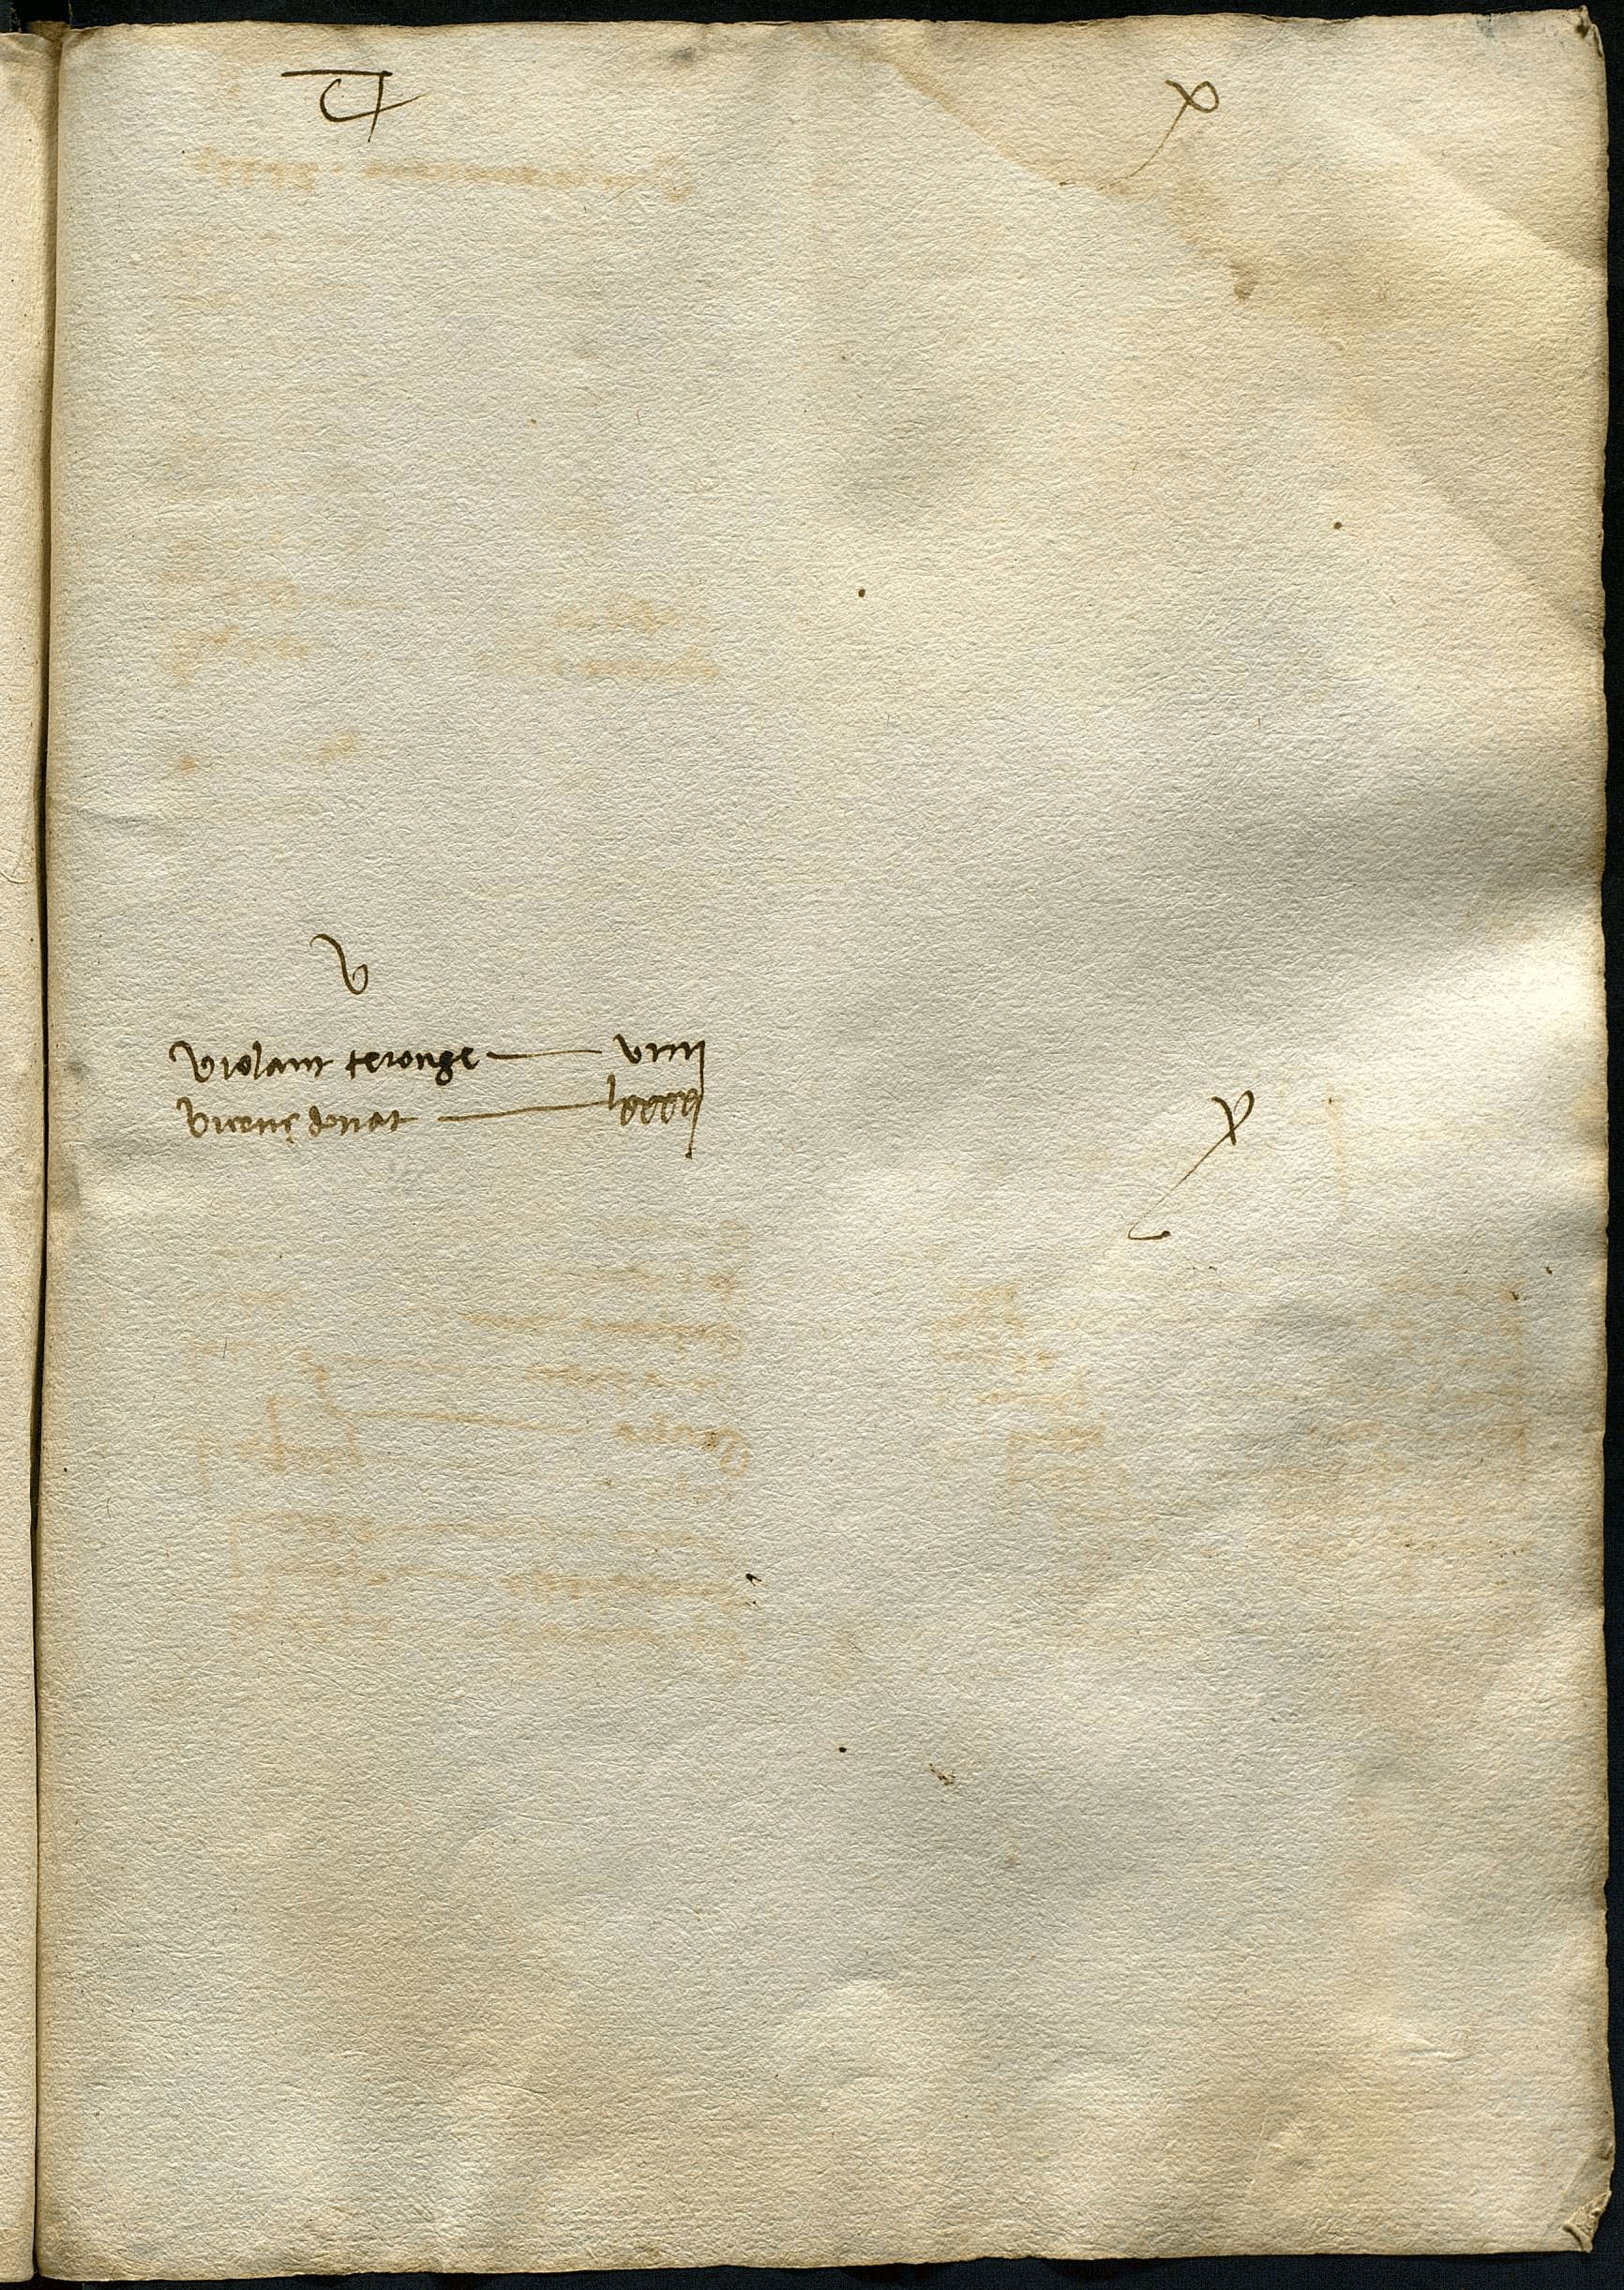 T
x
v
violant teronge viiij
vicenç donat lxxxxj
x